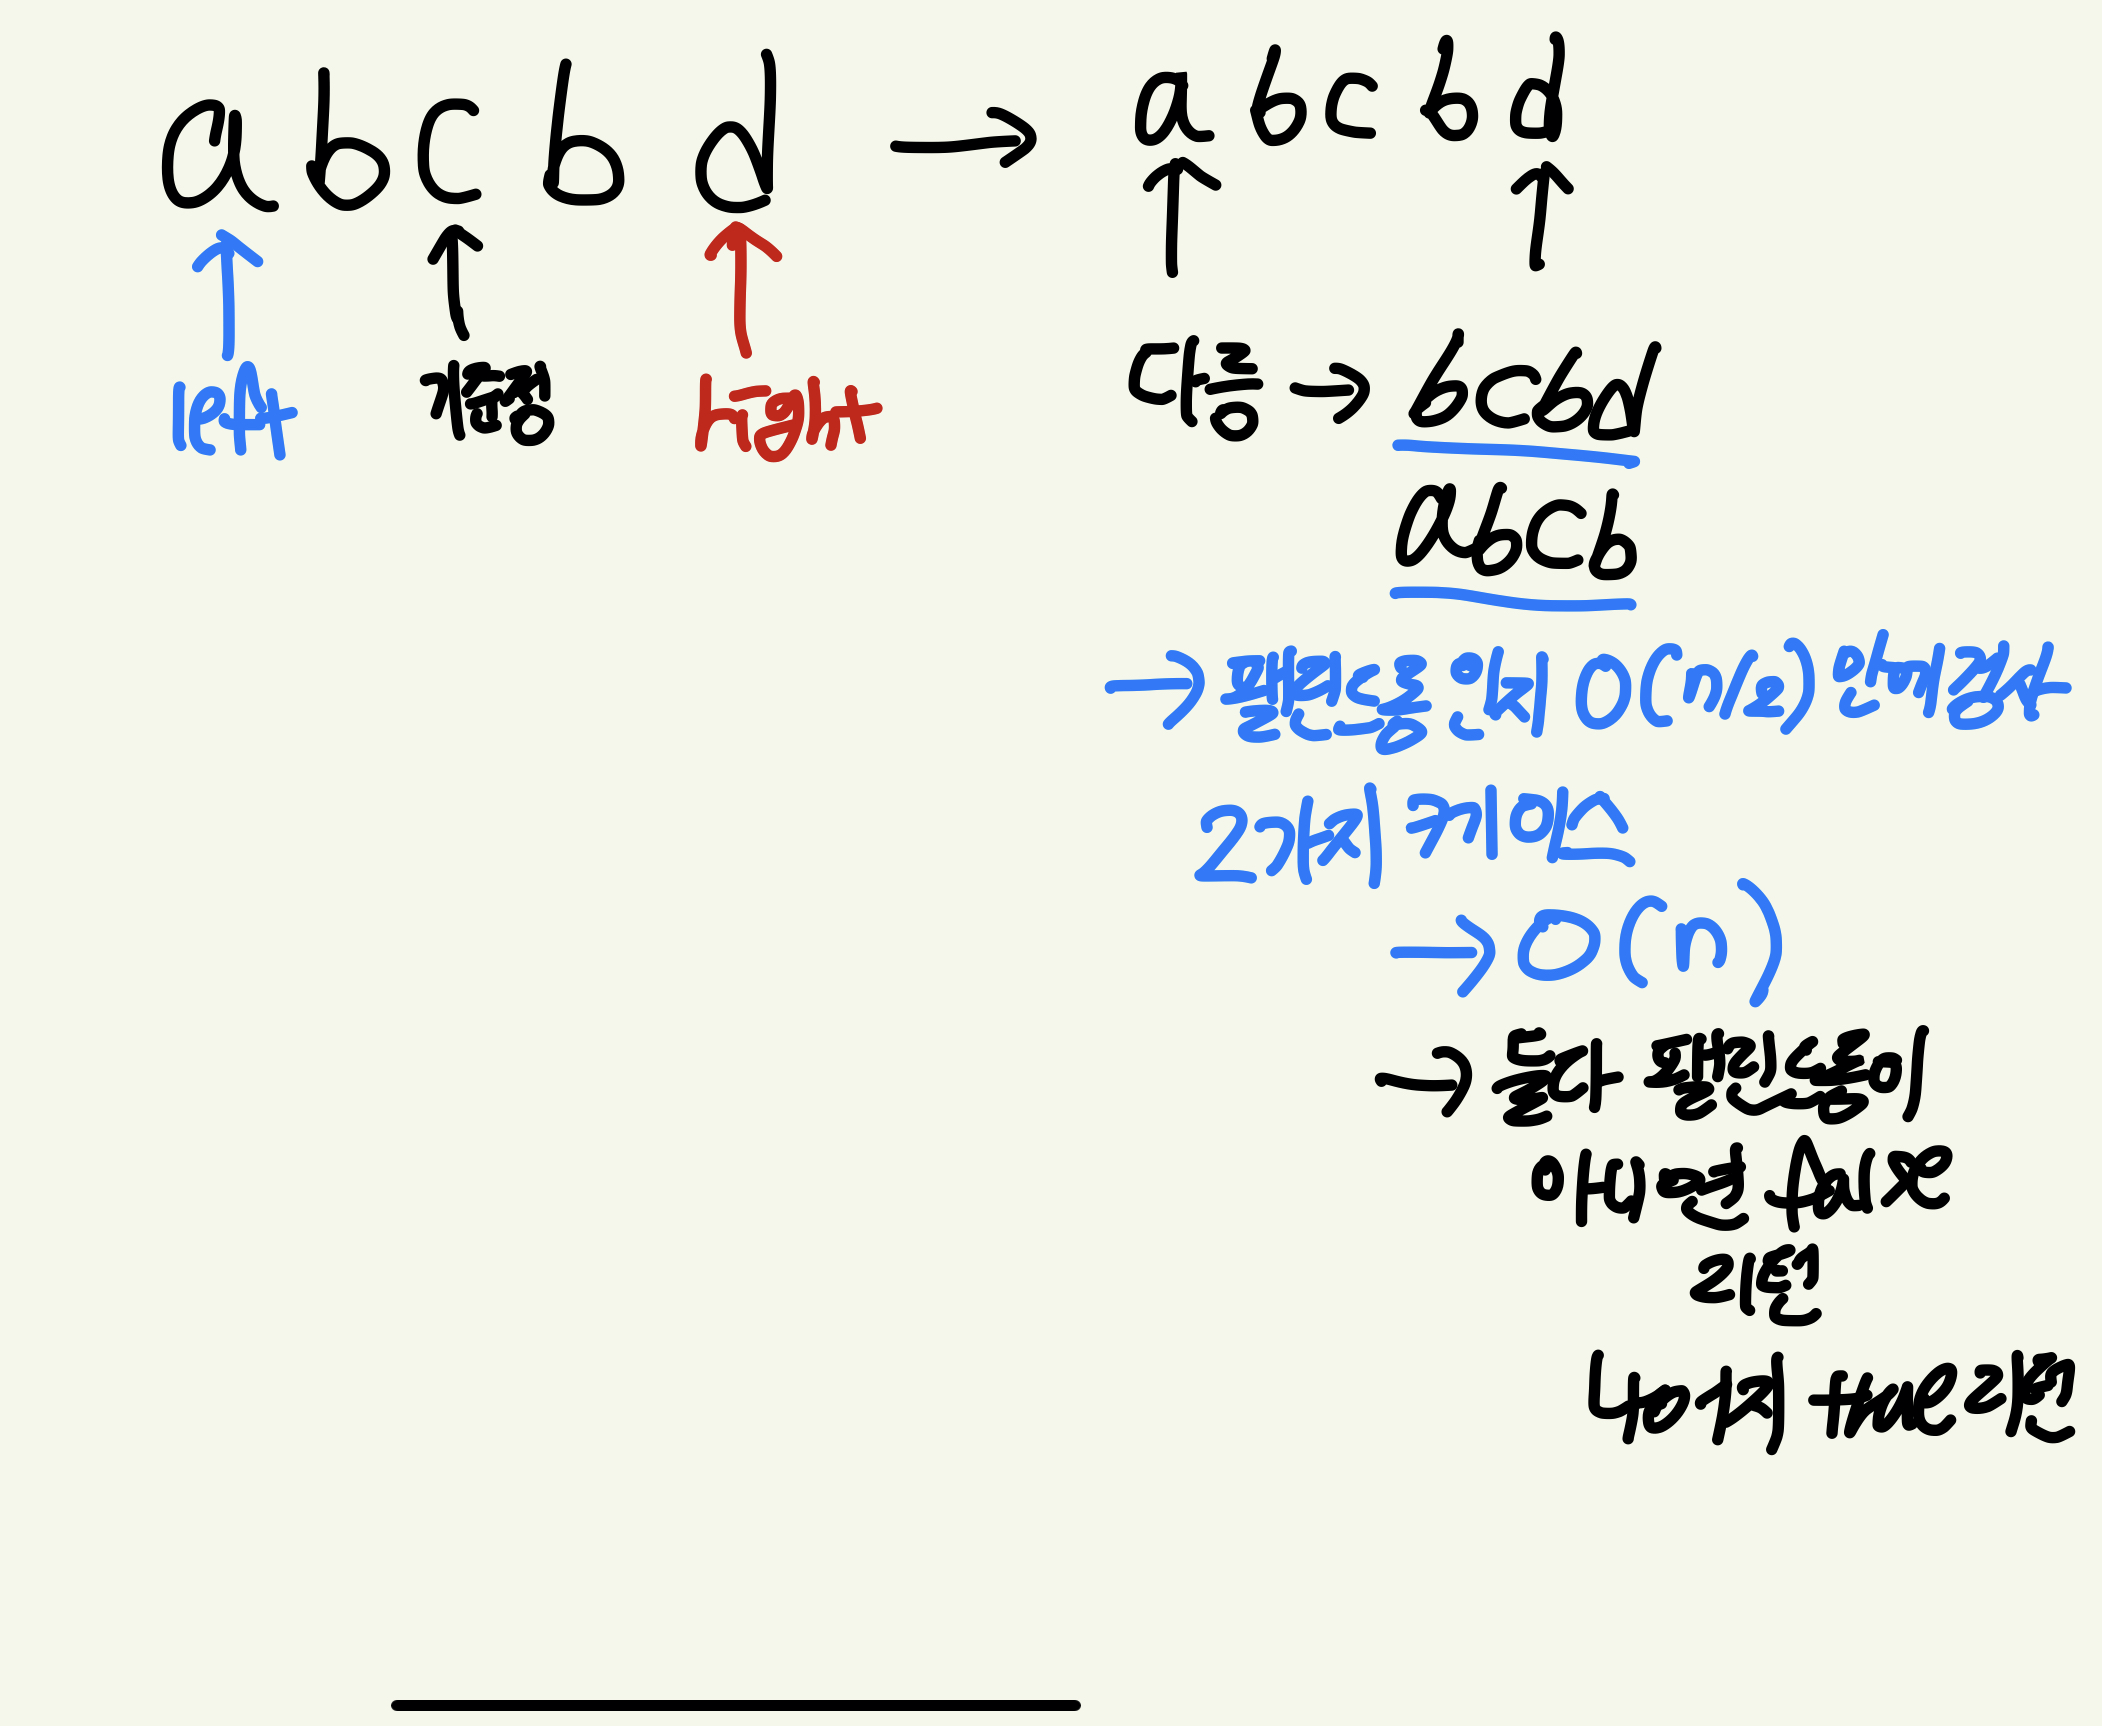 abcbd → abcbd
left 기준점 right
다름 → bcbd
abcb
→ 팰린드롬인지 O(n/2) 만에 검사
2가지 케이스
→ O(n)
→ 둘다 팰린드롬이
아니면 false
리턴
하나라도 true 리턴